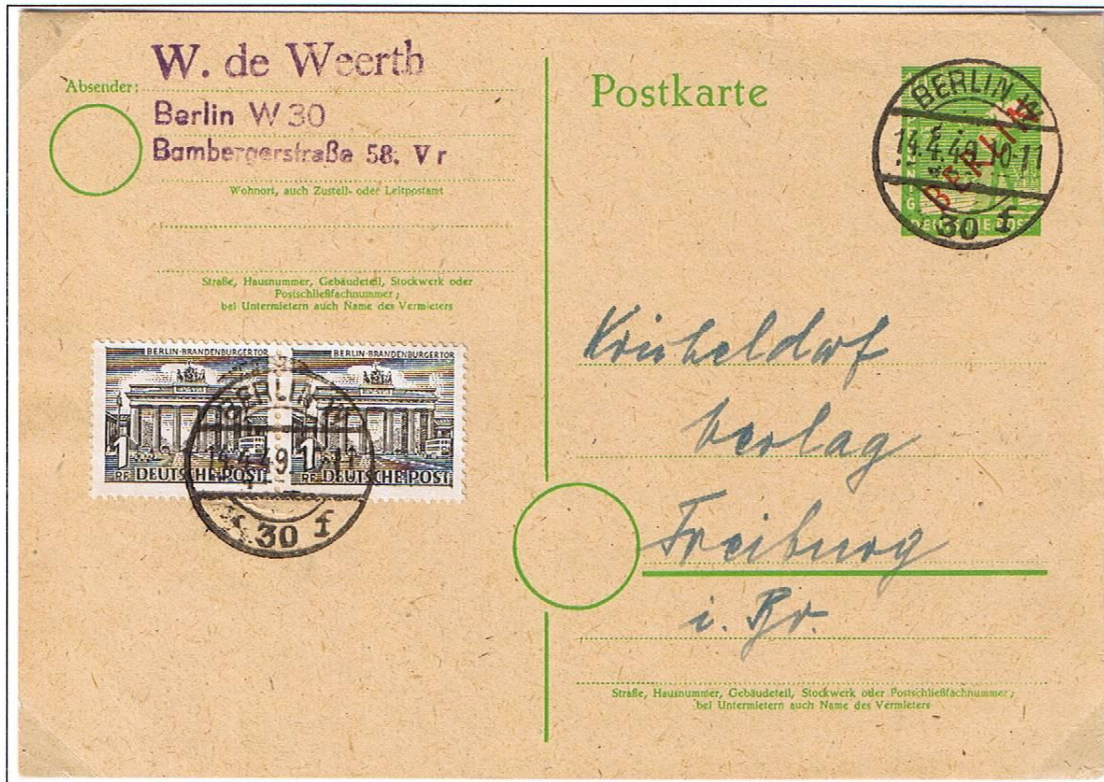 W. de Weerth
Absender:
Berlin W 30
Bambergerstraße 58. V r
Wohnort, auch Zustell- oder Leitpostamt
Straße, Hausnummer, Gebäudeteil, Stockwerk oder
Postschließfachnummer;
bei Untermietern auch Name des Vermieters
BERLIN-BRANDENBURGER TOR
1
PF
DEUTSCHE POST
BERLIN-BRANDENBURGER TOR
1
PF
DEUTSCHE POST
BERLIN W
14.4.49
30 f
Postkarte
BERLIN W
14.4.49 10-11
30 f
BERLIN
DEUTSCHE POST
Kricheldorf
Verlag
Freiburg
i. Br.
Straße, Hausnummer, Gebäudeteil, Stockwerk oder Postschließfachnummer;
bei Untermietern auch Name des Vermieters